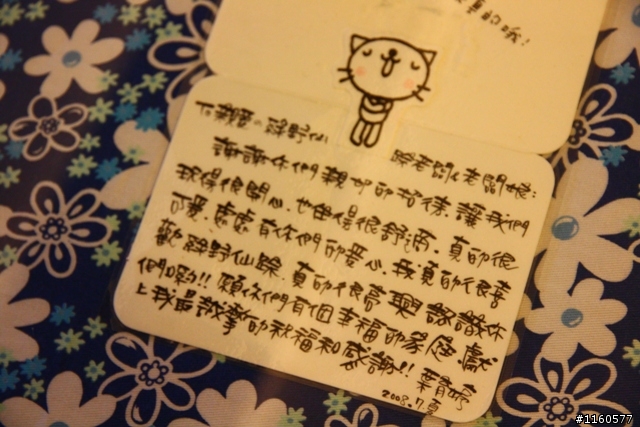 真的哦!
To 親愛的 綠野仙踪老闆&老闆娘:
謝謝你們親切的招待,讓我們
玩得很開心,也住得很舒適,真的很
可愛,處處有你們的愛心,我真的很喜
歡綠野仙踪,真的很高興認識你
們喲!!願你們有個幸福的家庭,獻
上我最誠摯的祝福和感謝!!
2008.7.夏
#1160577